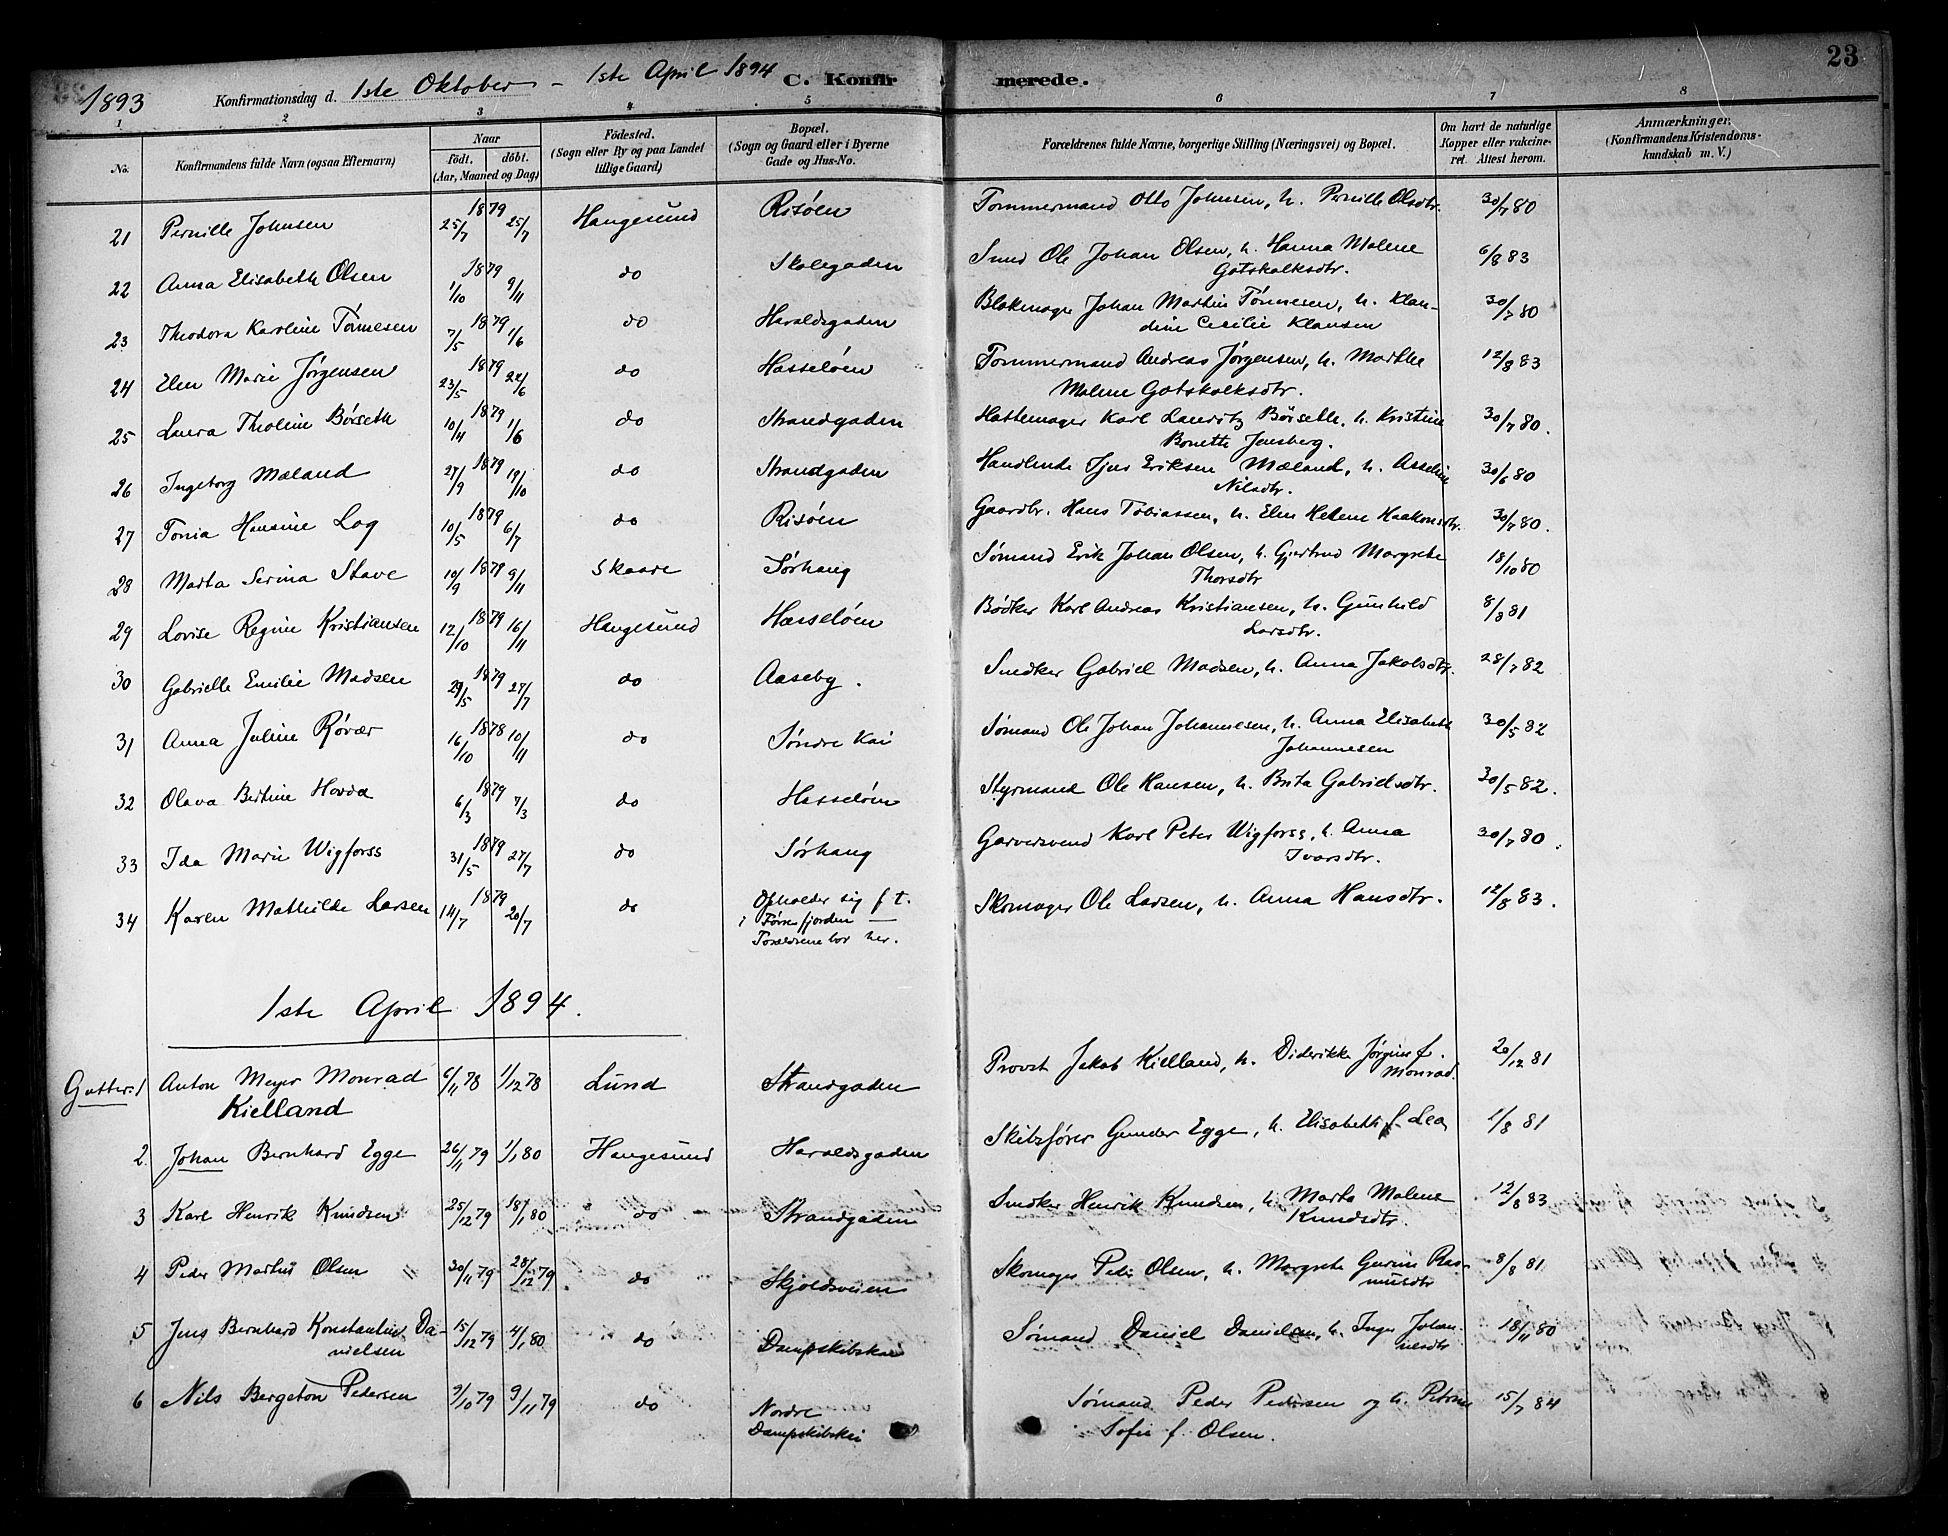 23
1893 Konfirmationsdag d. 1ste Oktober – 1ste April 1894 C. Konfirmerede.
1 2 3 4 5 6 7 8
No. Konfirmandens fulde Navn (ogsaa Efternavn) Naar Födt. döbt. (Aar, Maaned og Dag) Födested. (Sogn eller By og paa Landet tillige Gaard) Bopæl. (Sogn og Gaard eller i Byerne Gade og Hus-No. Forældrenes fulde Navne, borgerlige Stilling (Næringsvei) og Bopæl. Om havt de naturlige Kopper eller vakcineret. Attest herom. Anmærkninger. (Konfirmandens Kristendomskundskab m. V.)
21 Pernille Johnsen 1879 25/7 25/7 Haugesund Risøen Tømmermand Otto Johnsen, h. Pernille Olsdtr. 30/7 80
22 Anna Elisabeth Olsen 1879 1/10 9/11 do Skolegaden Smed Ole Johan Olsen, h. Hanna Malene
Gotskalksdtr. 6/8 83
23 Theodora Karoline Tønnesen 1879 7/5 1/6 do Haraldsgaden Blokmager Johan Martin Tønnesen, h. Klau-
dine Cecilie Klausen 30/7 80
24 Elen Marie Jørgensen 1879 23/5 22/6 do Hasseløen Tømmermand Andreas Jørgensen, h. Marthe
Malene Gotskalksdtr. 12/8 83
25 Laura Tholine Børseth 1879 10/4 1/6 do Strandgaden Hattemager Karl Lauritz Børseth, h. Kristine
Bonette Jensberg. 30/7 80.
26 Ingeborg Mæland 1879 27/9 19/10 do Strandgaden Handlende Tjns Eriksen Mæland, h. Asseline
Nilsdtr. 30/6 80
27 Tonia Hansine Log 1879 10/5 6/7 do Risøen Gaardbr. Hans Tobiassen, h. Elen Helene Haakonsdtr. 30/7 80.
28 Marta Serina Stave 1878 10/9 9/11 Skaare Sørhaug Sømand Erik Johan Olsen, h. Gjertrud Margrete
Thorsdtr 18/10 80
29 Lovise Regine Kristiansen 1879 12/10 16/11 Haugesund Hasseløen Bødker Karl Andreas Kristiansen, h. Gunhild
Larsdtr. 8/8 81
30 Gabrielle Emilie Madsen 1879 29/5 27/7 do Aaseby. Snedker Gabriel Madsen, h. Anna Jakobsdtr. 28/7 82
31 Anna Juline Røvær 1878 16/10 10/11 do Søndre Kai Sømand Ole Johan Johannesen, h. Anna Elisabeth
Johannesen 30/5 82
32 Olava Bertine Hovda 1879 6/3 7/3 do Hasseløen Styrmand Ole Hansen, h. Brita Gabrielsdtr. 30/5 82.
33 Ida Marie Wigforss 1879 31/5 27/7 do Sørhaug Garversvend Karl Peter Wigforss, h. Anna
Ivarsdtr. 30/7 80.
34 Karen Mathilde Larsen 1879 14/7 20/7 do Opholder sig f. t.
i Førresfjorden
Forældrene bor her. Skomager Ole Larsen, h. Anna Hansdtr. 12/8 83.
1ste April 1894.
Gutter. 1 Anton Meyer Monrad
Kielland 6/11 78 1/12 78 Lund Strandgaden Provst Jakob Kielland, h. Diderikke Jørgine f.
Monrad. 20/12 81
2. Johan Bernhard Egge 26/11 79 1/1 80 Haugesund Haraldsgaden Skibsfører Gunder Egge, h. Elisabeth f. Lea 1/8 81
3 Karl Henrik Knudsen 25/12 79 18/1 80 do Strandgaden Snedker Henrik Knudsen, h. Marta Malene
Knudsdtr. 12/8 83
4 Peder Martius Olsen 30/11 79 28/12 79 do Skjoldsveien Skomager Peder Olsen, h. Margrete Gurine Ras-
musdtr 8/8 81
5 Jens Bernhard Konstantin Da-
nielsen 15/12 79 4/1 80 do Dampskibskai Sømand Daniel Danielsen, h. Inger Johan-
nesdtr 18/11 80
6 Nils Bergeton Pedersen 9/10 79 9/11 79 do Nordre
Dampskibskai Sømand Peder Pedersen og h. Petrine
Sofie f. Olsen. 15/7 84